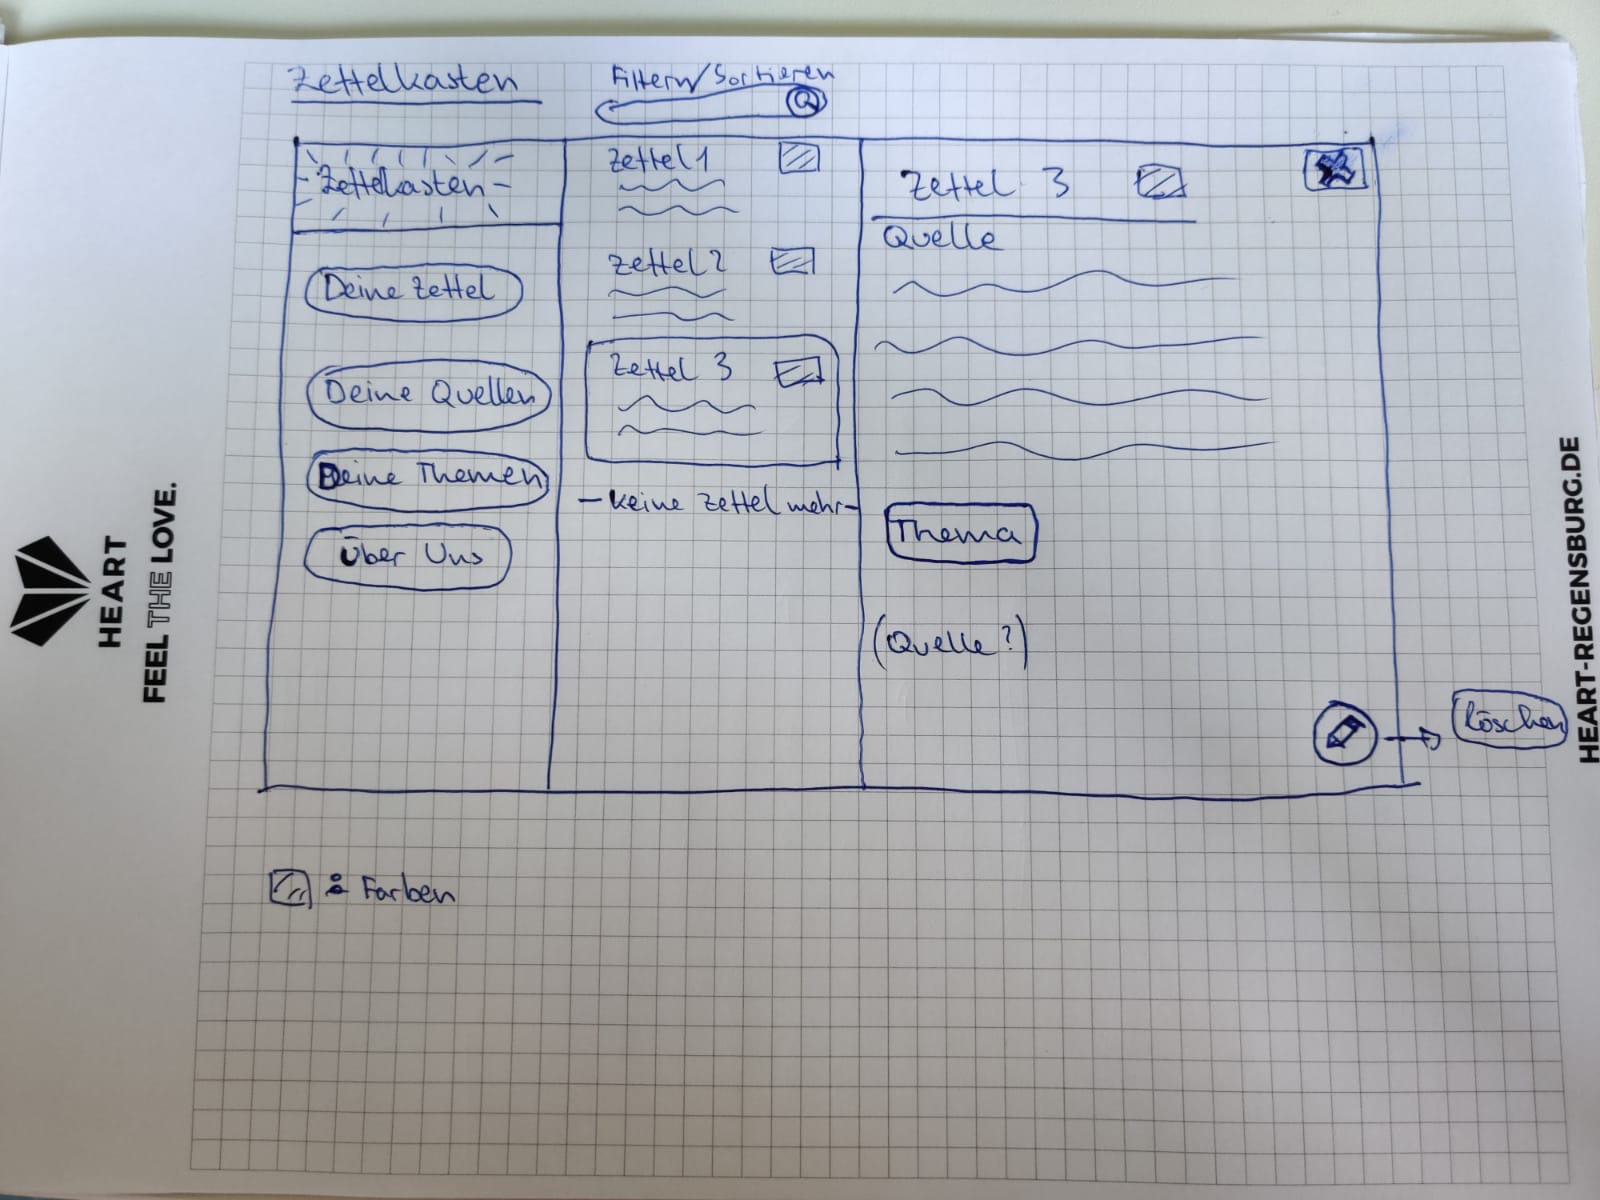 Zettelkasten
Filtern/Sortieren
Zettelkasten
Deine Zettel
Deine Quellen
Deine Themen
Über Uns
Zettel 1
Zettel 2
Zettel 3
- keine Zettel mehr -
Zettel 3
Quelle
Thema
(Quelle?)
Löschen
: Farben
HEART
FEEL THE LOVE.
HEART-REGENSBURG.DE